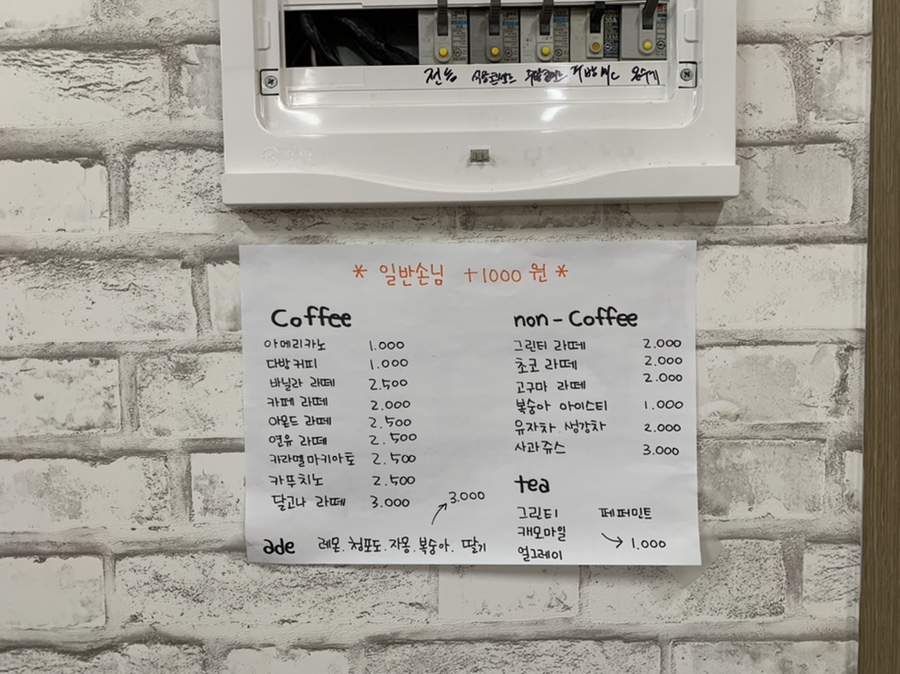 전등
* 일반손님 +1000 원 *
Coffee
아메리카노 1.000
다방커피 1.000
바닐라 라떼 2.500
카페 라떼 2.000
아몬드 라떼 2.500
연유 라떼 2.500
카라멜마키아토 2.500
카푸치노 2.500
달고나 라떼 3.000
ade 레몬. 청포도. 자몽. 복숭아. 딸기
3.000
non-Coffee
그린티 라떼 2.000
초코 라떼 2.000
고구마 라떼 2.000
복숭아 아이스티 1.000
유자차 생강차 2.000
사과쥬스 3.000
tea
그린티 페퍼민트
캐모마일
얼그레이
1.000